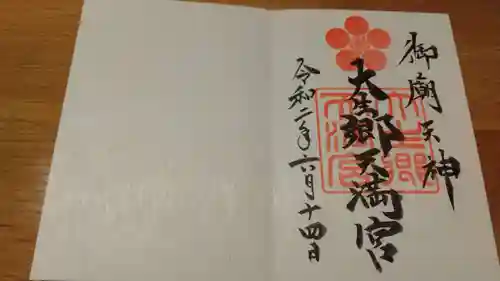 御廟天神
大生郷天満宮
令和二年六月十四日